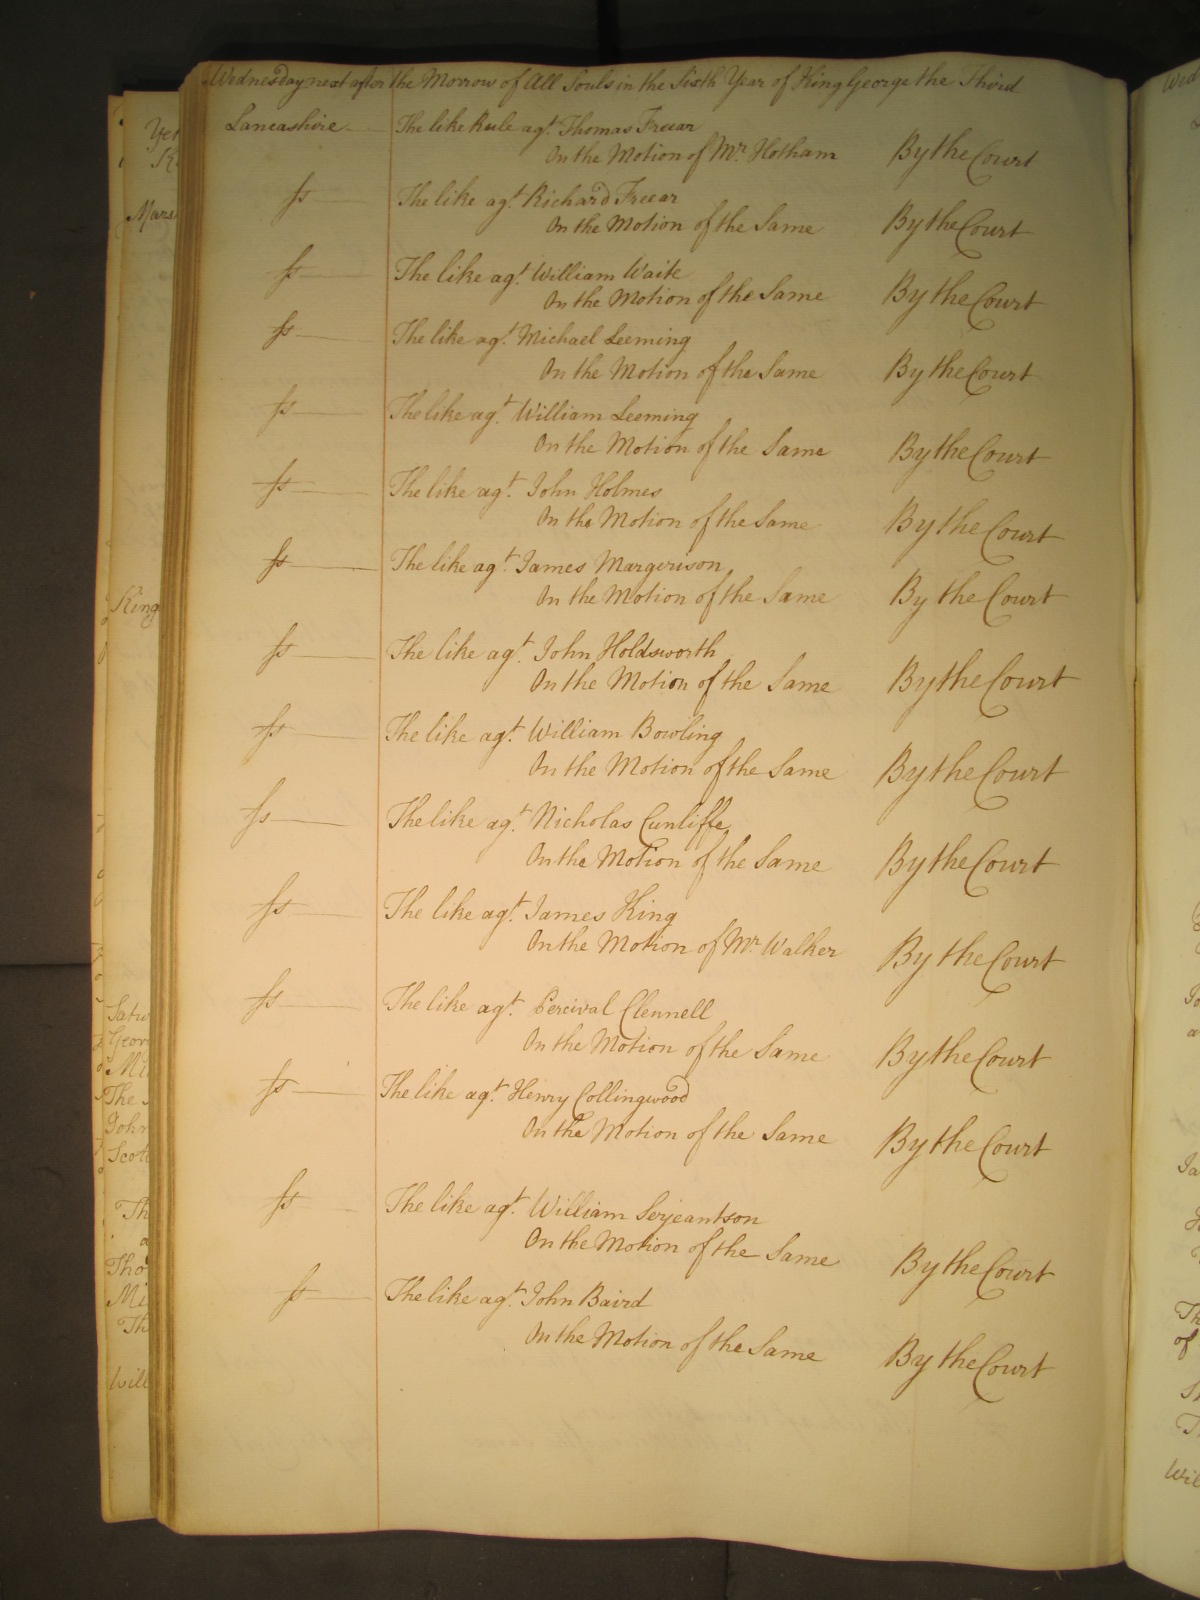 Wednesday next after the Morrow of All Souls in the Sixth Year of King George the Third
Lancashire The like Rule agt. Thomas Freear
On the Motion of Mr. Hotham By the Court
ss The like agt. Richard Freear
On the Motion of the Same By the Court
ss The like agt. William Waite
On the Motion of the Same By the Court
ss The like agt. Michael Leeming
On the Motion of the Same By the Court
ss The like agt. William Leeming
On the Motion of the Same By the Court
ss The like agt. John Holmes
On the Motion of the Same By the Court
ss The like agt. James Margerison
On the Motion of the Same By the Court
ss The like agt. John Holdsworth
On the Motion of the Same By the Court
ss The like agt. William Bowling
On the Motion of the Same By the Court
ss The like agt. Nicholas Cunliffe
On the Motion of the Same By the Court
ss The like agt. James King
On the Motion of Mr. Walker By the Court
ss The like agt. Percival Clennell
On the Motion of the Same By the Court
ss The like agt. Henry Collingwood
On the Motion of the Same By the Court
ss The like agt. William Serjeantson
On the Motion of the Same By the Court
ss The like agt. John Baird
On the Motion of the Same By the Court